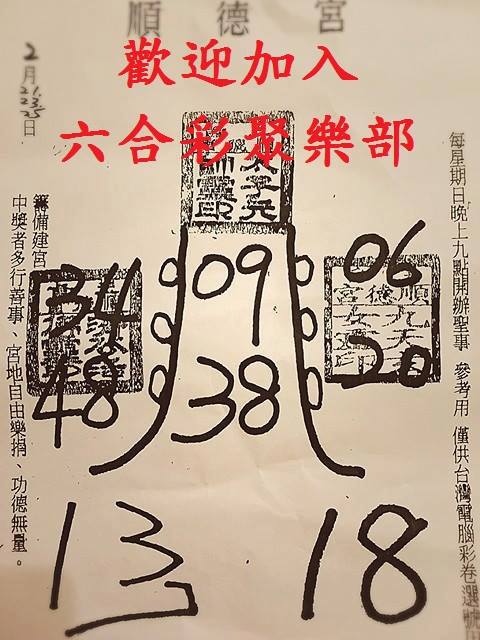 順德宮
歡迎加入
六合彩聚樂部
2月21.23.25日
每星期日晚上九點開辦聖事 參考用 僅供台灣電腦彩卷選號
籌備建宮
中獎者多行善事、宮地自由樂捐、功德無量。
09
38
06
20
34
48
13
18